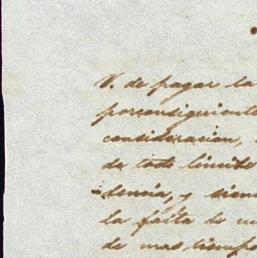 V. de pagar la
porconsiguiente
consideracion,
de todo limite
dencia, y sien
la falta de me
de mas tiempo